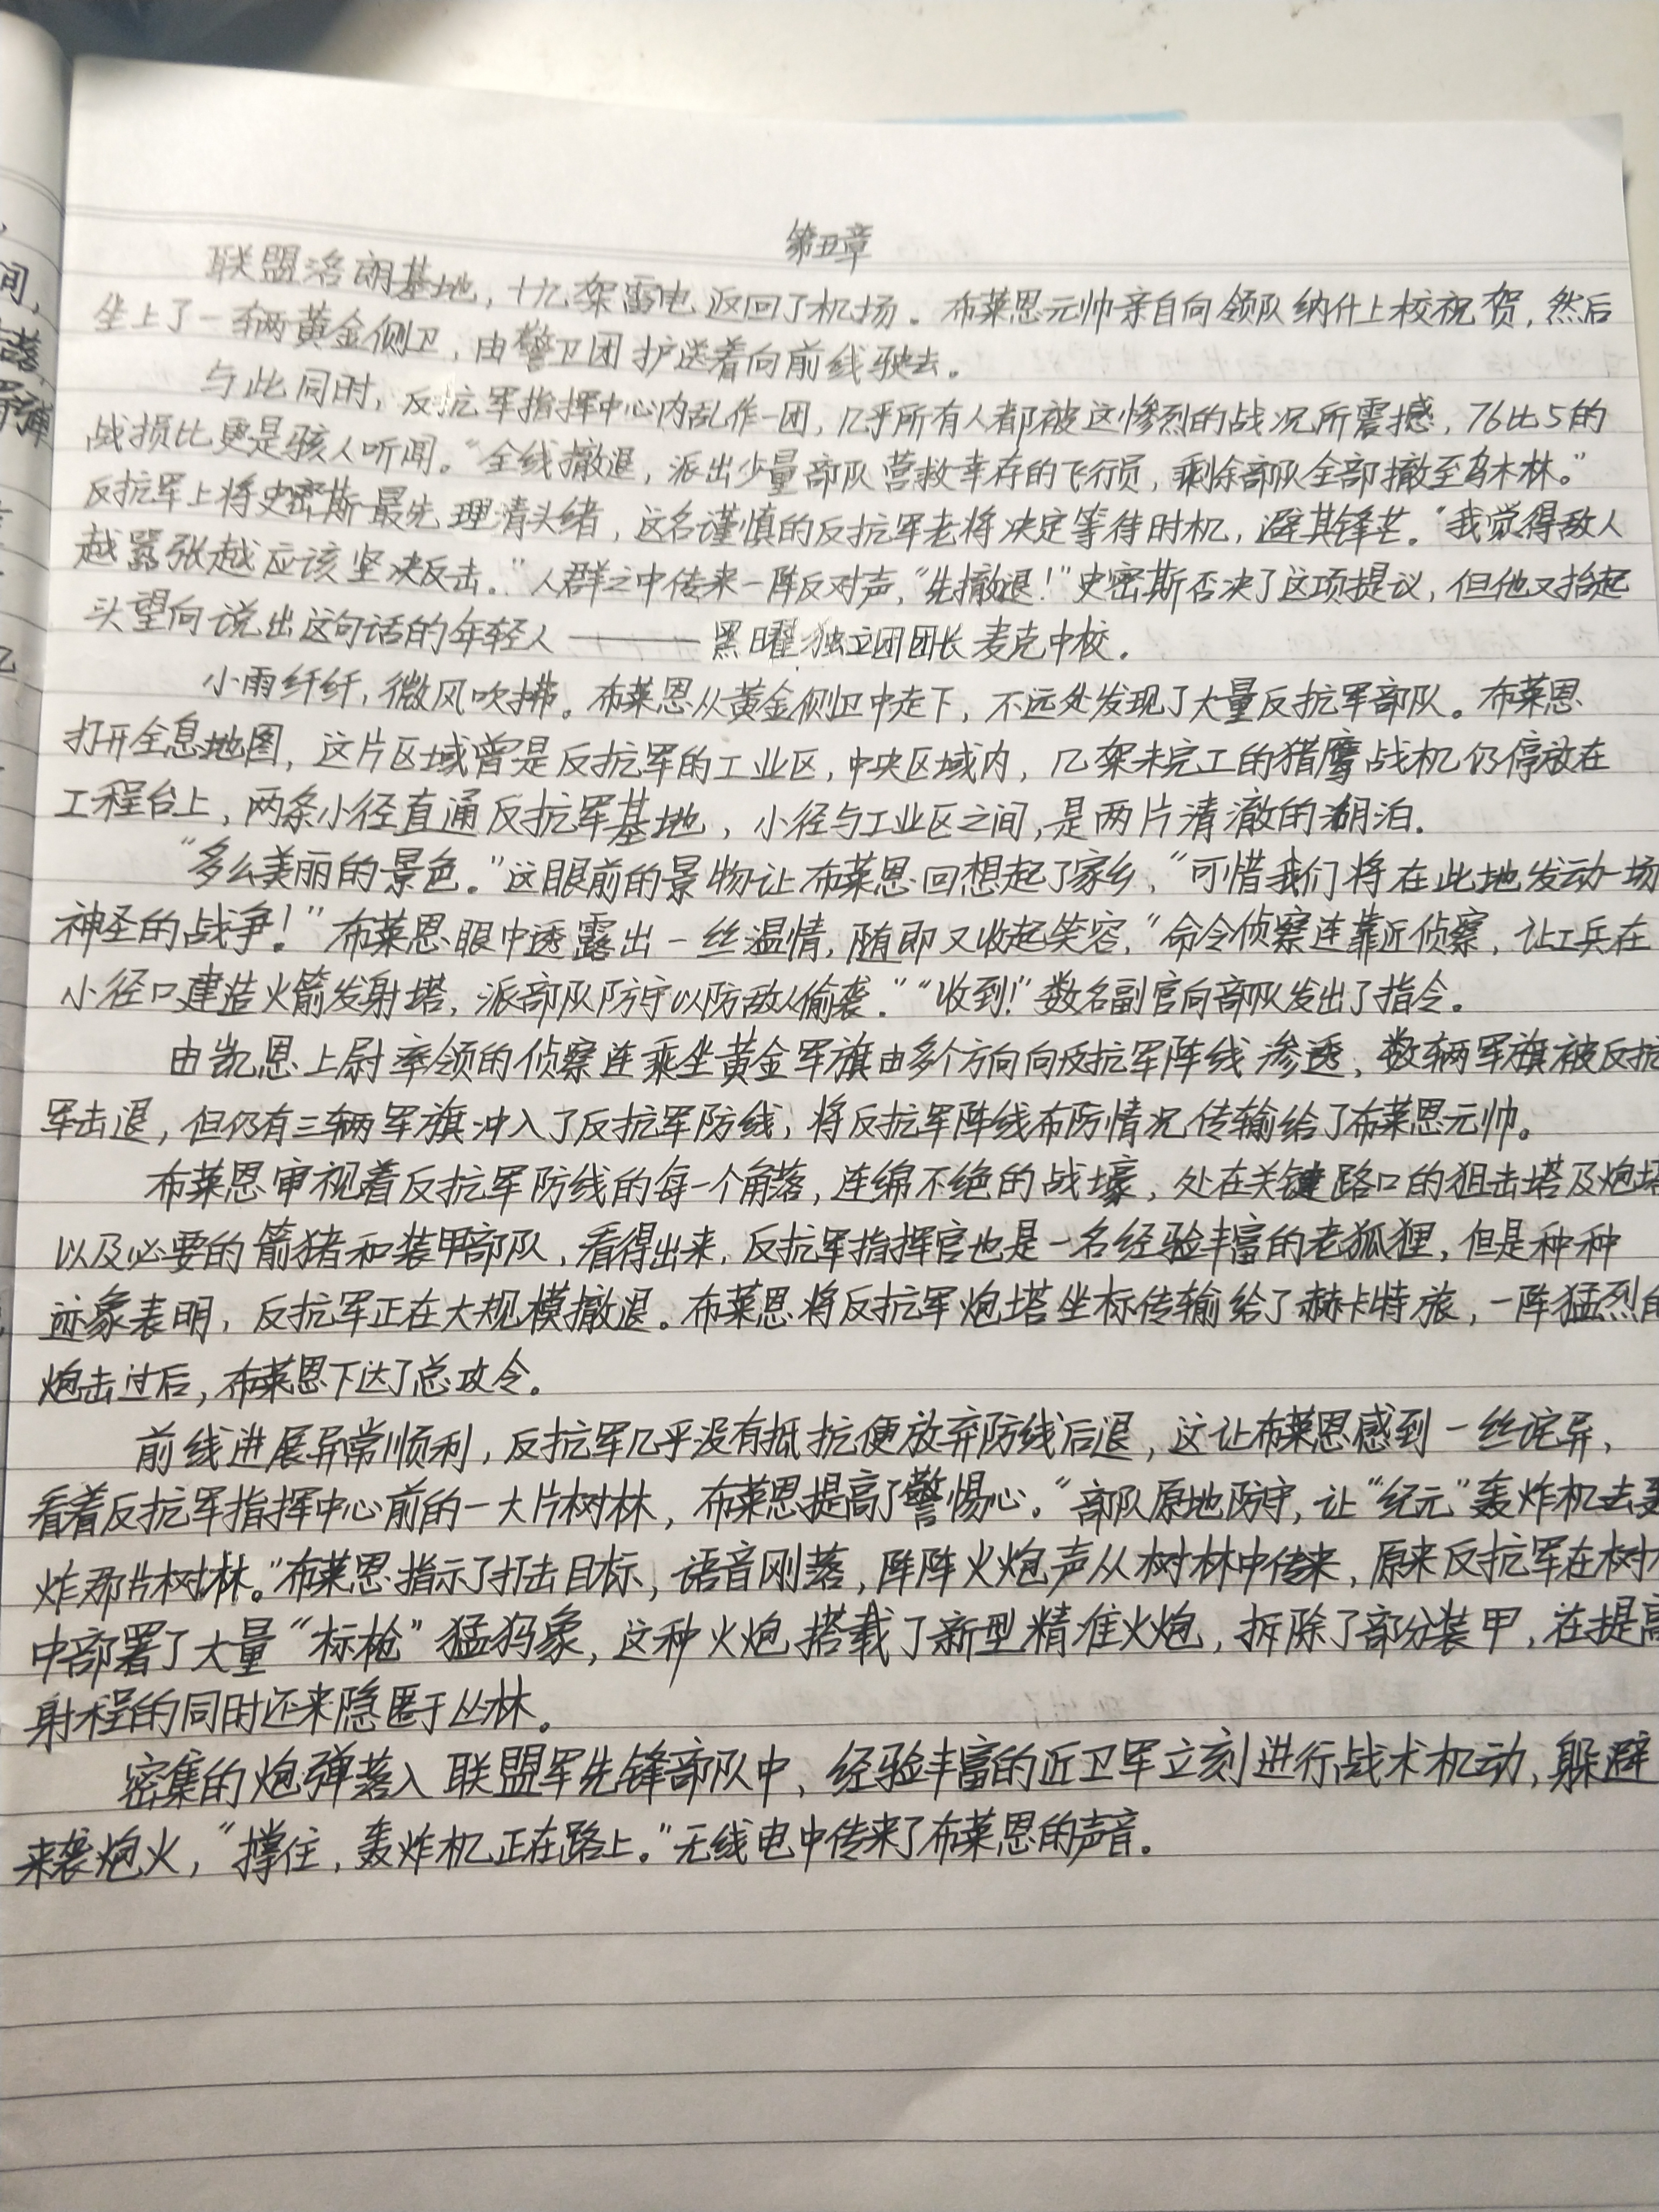 第五章
联盟洛朗基地，十九架雷电返回了机场。布莱恩元帅亲自向领队纳什上校祝贺，然后
坐上了一辆黄金侧卫，由警卫团护送着向前线驶去。
与此同时，反抗军指挥中心内乱作一团，几乎所有人都被这惨烈的战况所震撼，76比5的
战损比更是骇人听闻。“全线撤退，派出少量部队营救幸存的飞行员，剩余部队全部撤至乌木林。”
反抗军上将史密斯最先理清头绪，这名谨慎的反抗军老将决定等待时机，避其锋芒。“我觉得敌人
越嚣张越应该坚决反击。”人群之中传来一阵反对声，“先撤退！”史密斯否决了这项提议，但他又抬起
头望向说出这句话的年轻人———黑曜独立团团长麦克中校。
小雨纤纤，微风吹拂。布莱恩从黄金侧卫中走下，不远处发现了大量反抗军部队。布莱恩
打开全息地图，这片区域曾是反抗军的工业区，中央区域内，几架未完工的猎鹰战机仍停放在
工程台上，两条小径直通反抗军基地，小径与工业区之间，是两片清澈的湖泊.
“多么美丽的景色。”这眼前的景物让布莱恩回想起了家乡，“可惜我们将在此地发动一场
神圣的战争！”布莱恩眼中透露出一丝温情，随即又收起笑容，“命令侦察连靠近侦察，让工兵在
小径口建造火箭发射塔，派部队防守以防敌人偷袭。”“收到！”数名副官向部队发出了指令。
由凯恩上尉率领的侦察连乘坐黄金军旗由多个方向向反抗军阵线渗透，数辆军旗被反抗
军击退，但仍有三辆军旗冲入了反抗军防线，将反抗军阵线布防情况传输给了布莱恩元帅。
布莱恩审视着反抗军防线的每一个角落，连绵不绝的战壕，处在关键路口的狙击塔及炮塔
以及必要的箭猪和装甲部队，看得出来，反抗军指挥官也是一名经验丰富的老狐狸，但是种种
迹象表明，反抗军正在大规模撤退。布莱恩将反抗军炮塔坐标传输给了赫卡特旅，一阵猛烈的
炮击过后，布莱恩下达了总攻令。
前线进展异常顺利，反抗军几乎没有抵抗便放弃防线后退，这让布莱恩感到一丝诧异，
看着反抗军指挥中心前的一大片树林，布莱恩提高了警惕心。“部队原地防守，让“纪元”轰炸机去轰
炸那片树林。”布莱恩指示了打击目标，语音刚落，阵阵火炮声从树林中传来，原来反抗军在树林
中部署了大量“标枪”猛犸象，这种火炮搭载了新型精准火炮，拆除了部分装甲，在提高
射程的同时还来隐匿于丛林。
密集的炮弹落入联盟军先锋部队中，经验丰富的近卫军立刻进行战术机动，躲避
来袭炮火，“撑住，轰炸机正在路上。”无线电中传来了布莱恩的声音。